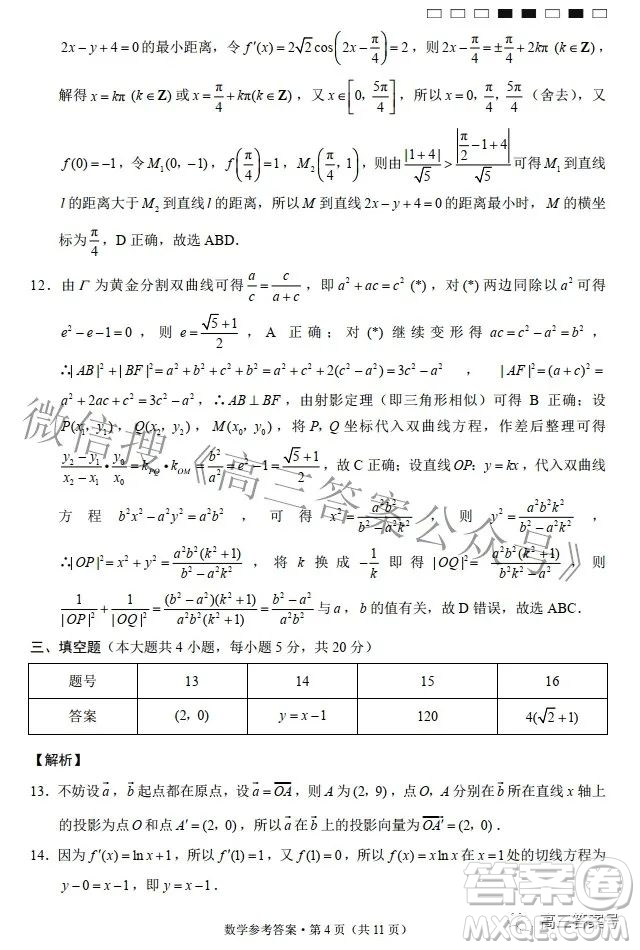 2x-y+4=0的最小距离，令 f′(x)=2√2cos(2x-π/4)=2，则2x-π/4=±π/4+2kπ (k∈Z)，
解得 x=kπ (k∈Z)或x=π/4+kπ(k∈Z)，又x∈[0, 5π/4]，所以x=0, π/4, 5π/4（舍去），又
f(0)=-1，令M₁(0，-1)，f(π/4)=1，M₂(π/4，1)，则由|1+4|/√5>|π/2-1+4|/√5可得M₁到直线
l的距离大于M₂到直线l的距离，所以M到直线2x-y+4=0的距离最小时，M的横坐
标为π/4，D正确，故选ABD．
12．由Γ为黄金分割双曲线可得a/c=c/(a+c)，即a²+ac=c² (*)，对(*)两边同除以a²可得
e²-e-1=0，则e=(√5+1)/2，A 正确；对(*)继续变形得ac=c²-a²=b²，
∴|AB|²+|BF|²=a²+b²+c²+b²=a²+c²+2(c²-a²)=3c²-a²，|AF|²=(a+c)²=
a²+2ac+c²=3c²-a²，∴AB⊥BF，由射影定理（即三角形相似）可得 B 正确；设
P(x₁，y₁)，Q(x₂，y₂)，M(x₀，y₀)，将P，Q坐标代入双曲线方程，作差后整理可得
(y₂-y₁)/(x₂-x₁)•y₀/x₀=k_PQ•k_OM=b²/a²=e²-1=(√5+1)/2，故C正确；设直线OP：y=kx，代入双曲线
方程 b²x²-a²y²=a²b²，可得 x²=a²b²/(b²-a²k²)，则 y²=a²b²k²/(b²-a²k²)，
∴|OP|²=x²+y²=a²b²(k²+1)/(b²-a²k²)，将 k 换成 -1/k 即得 |OQ|²=a²b²(k²+1)/(b²k²-a²)，则
1/|OP|²+1/|OQ|²=(b²-a²)(k²+1)/(a²b²(k²+1))=(b²-a²)/(a²b²)与a，b的值有关，故D错误，故选ABC．
三、填空题（本大题共4小题，每小题5分，共20分）
题号 13 14 15 16
答案 (2, 0) y=x-1 120 4(√2+1)
【解析】
13．不妨设a⃗，b⃗起点都在原点，设a⃗=OA⃗，则A为(2，9)，点O，A分别在b⃗所在直线x轴上
的投影为点O和点A′=(2，0)，所以a⃗在b⃗上的投影向量为OA′⃗=(2，0)．
14．因为f′(x)=lnx+1，所以f′(1)=1，又f(1)=0，所以f(x)=xlnx在x=1处的切线方程为
y-0=x-1，即y=x-1．
数学参考答案·第4页（共11页）
微信搜《高三答案公众号》
答案卷
高三答案号
MXQE.COM